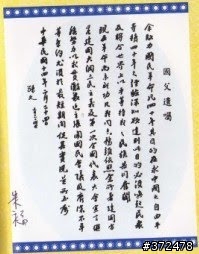 國父遺囑
余致力國民革命凡四十年其目的在求中國之自由平
等積四十年之經驗深知欲達到此目的必須喚起民眾
及聯合世界上以平等待我之民族共同奮鬥
現在革命尚未成功凡我同志務須依照余所著建國方
略建國大綱三民主義及第一次全國代表大會宣言繼
續努力以求貫徹最近主張開國民會議及廢除不平
等條約尤須於最短期間促其實現是所至囑
中華民國十四年二月二十四日
孫文
#372478